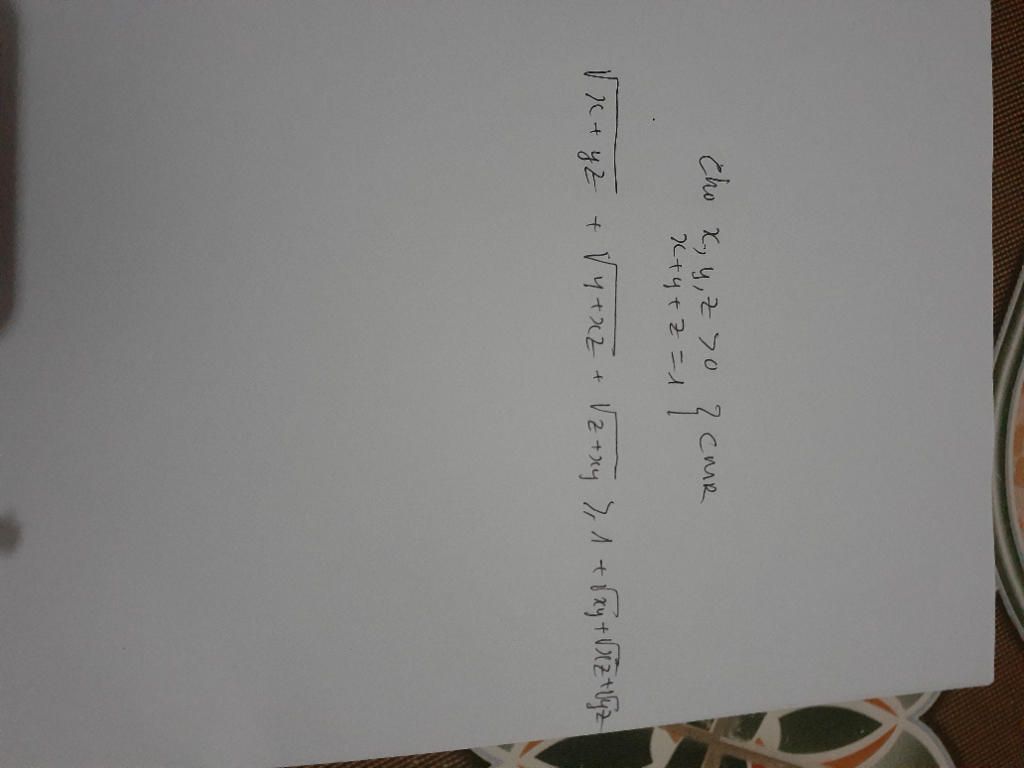 Cho x, y, z > 0 } CMR
x + y + z = 1
√(x + yz) + √(y + xz) + √(z + xy) ≥ 1 + √xy + √xz + √yz